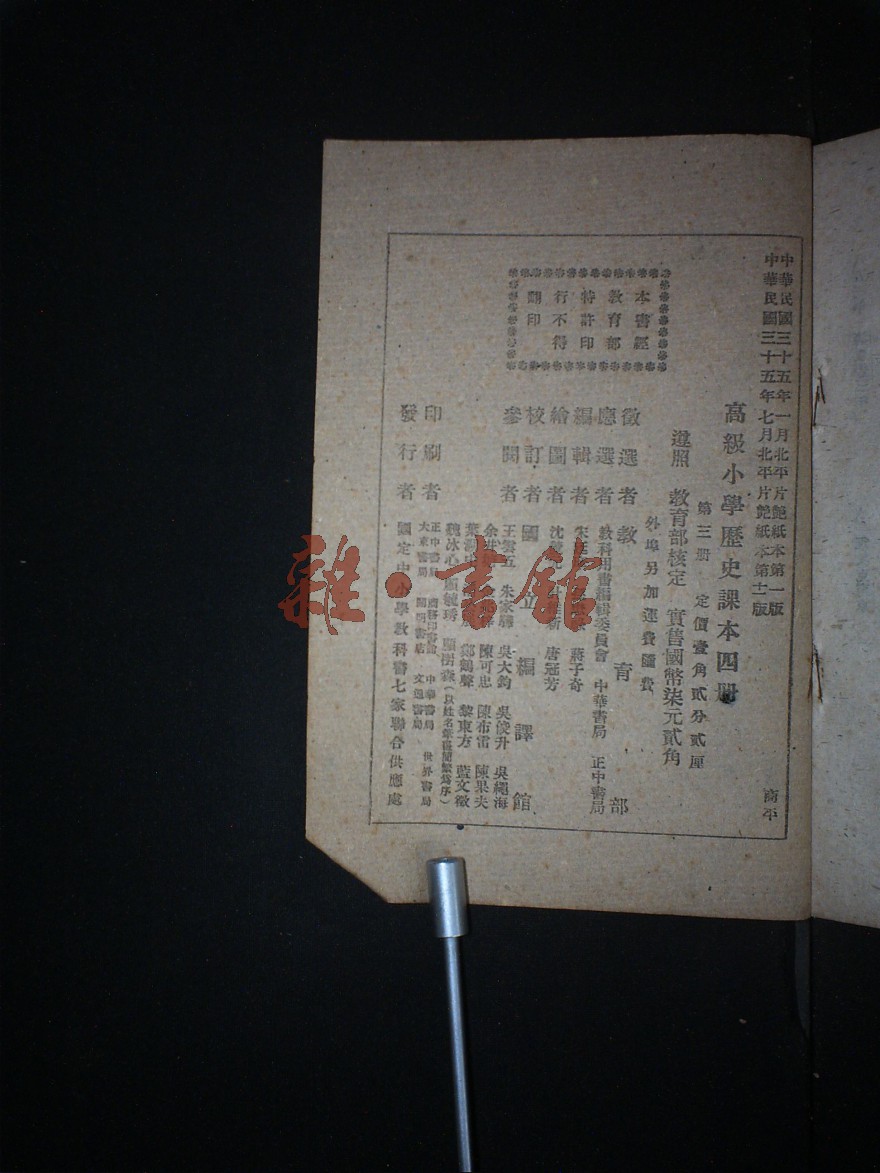 中華民國三十五年一月北平片艷紙本第一版
中華民國三十五年七月北平片艷紙本第十二版
高級小學歷史課本四冊
第三册 定價壹角貳分貳厘
遵照 教育部核定 實售國幣柒元貳角
外埠另加運費匯費
本書經
教育部
特許印
行不得
翻印
徵選者 教育部
應選者 教科用書編輯委員會 中華書局 正中書局
編輯者 蔣子奇
繪圖者 沈 新 唐冠芳
校訂者 國立編譯館
參閱者 王雲五 朱家驊 吳大鈞 吳俊升 吳繩海
余井 陳可忠 陳布雷 陳果夫
葉 鄭鶴聲 黎東方 藍文徵
魏冰心 顧毓琇 顧樹森(以姓名筆畫簡繁爲序)
印刷者 正中書局 商務印書館 中華書局 世界書局
大東書局 開明書店 文通書局
發行者 國定中小學教科書七家聯合供應處
商平
雜·書館